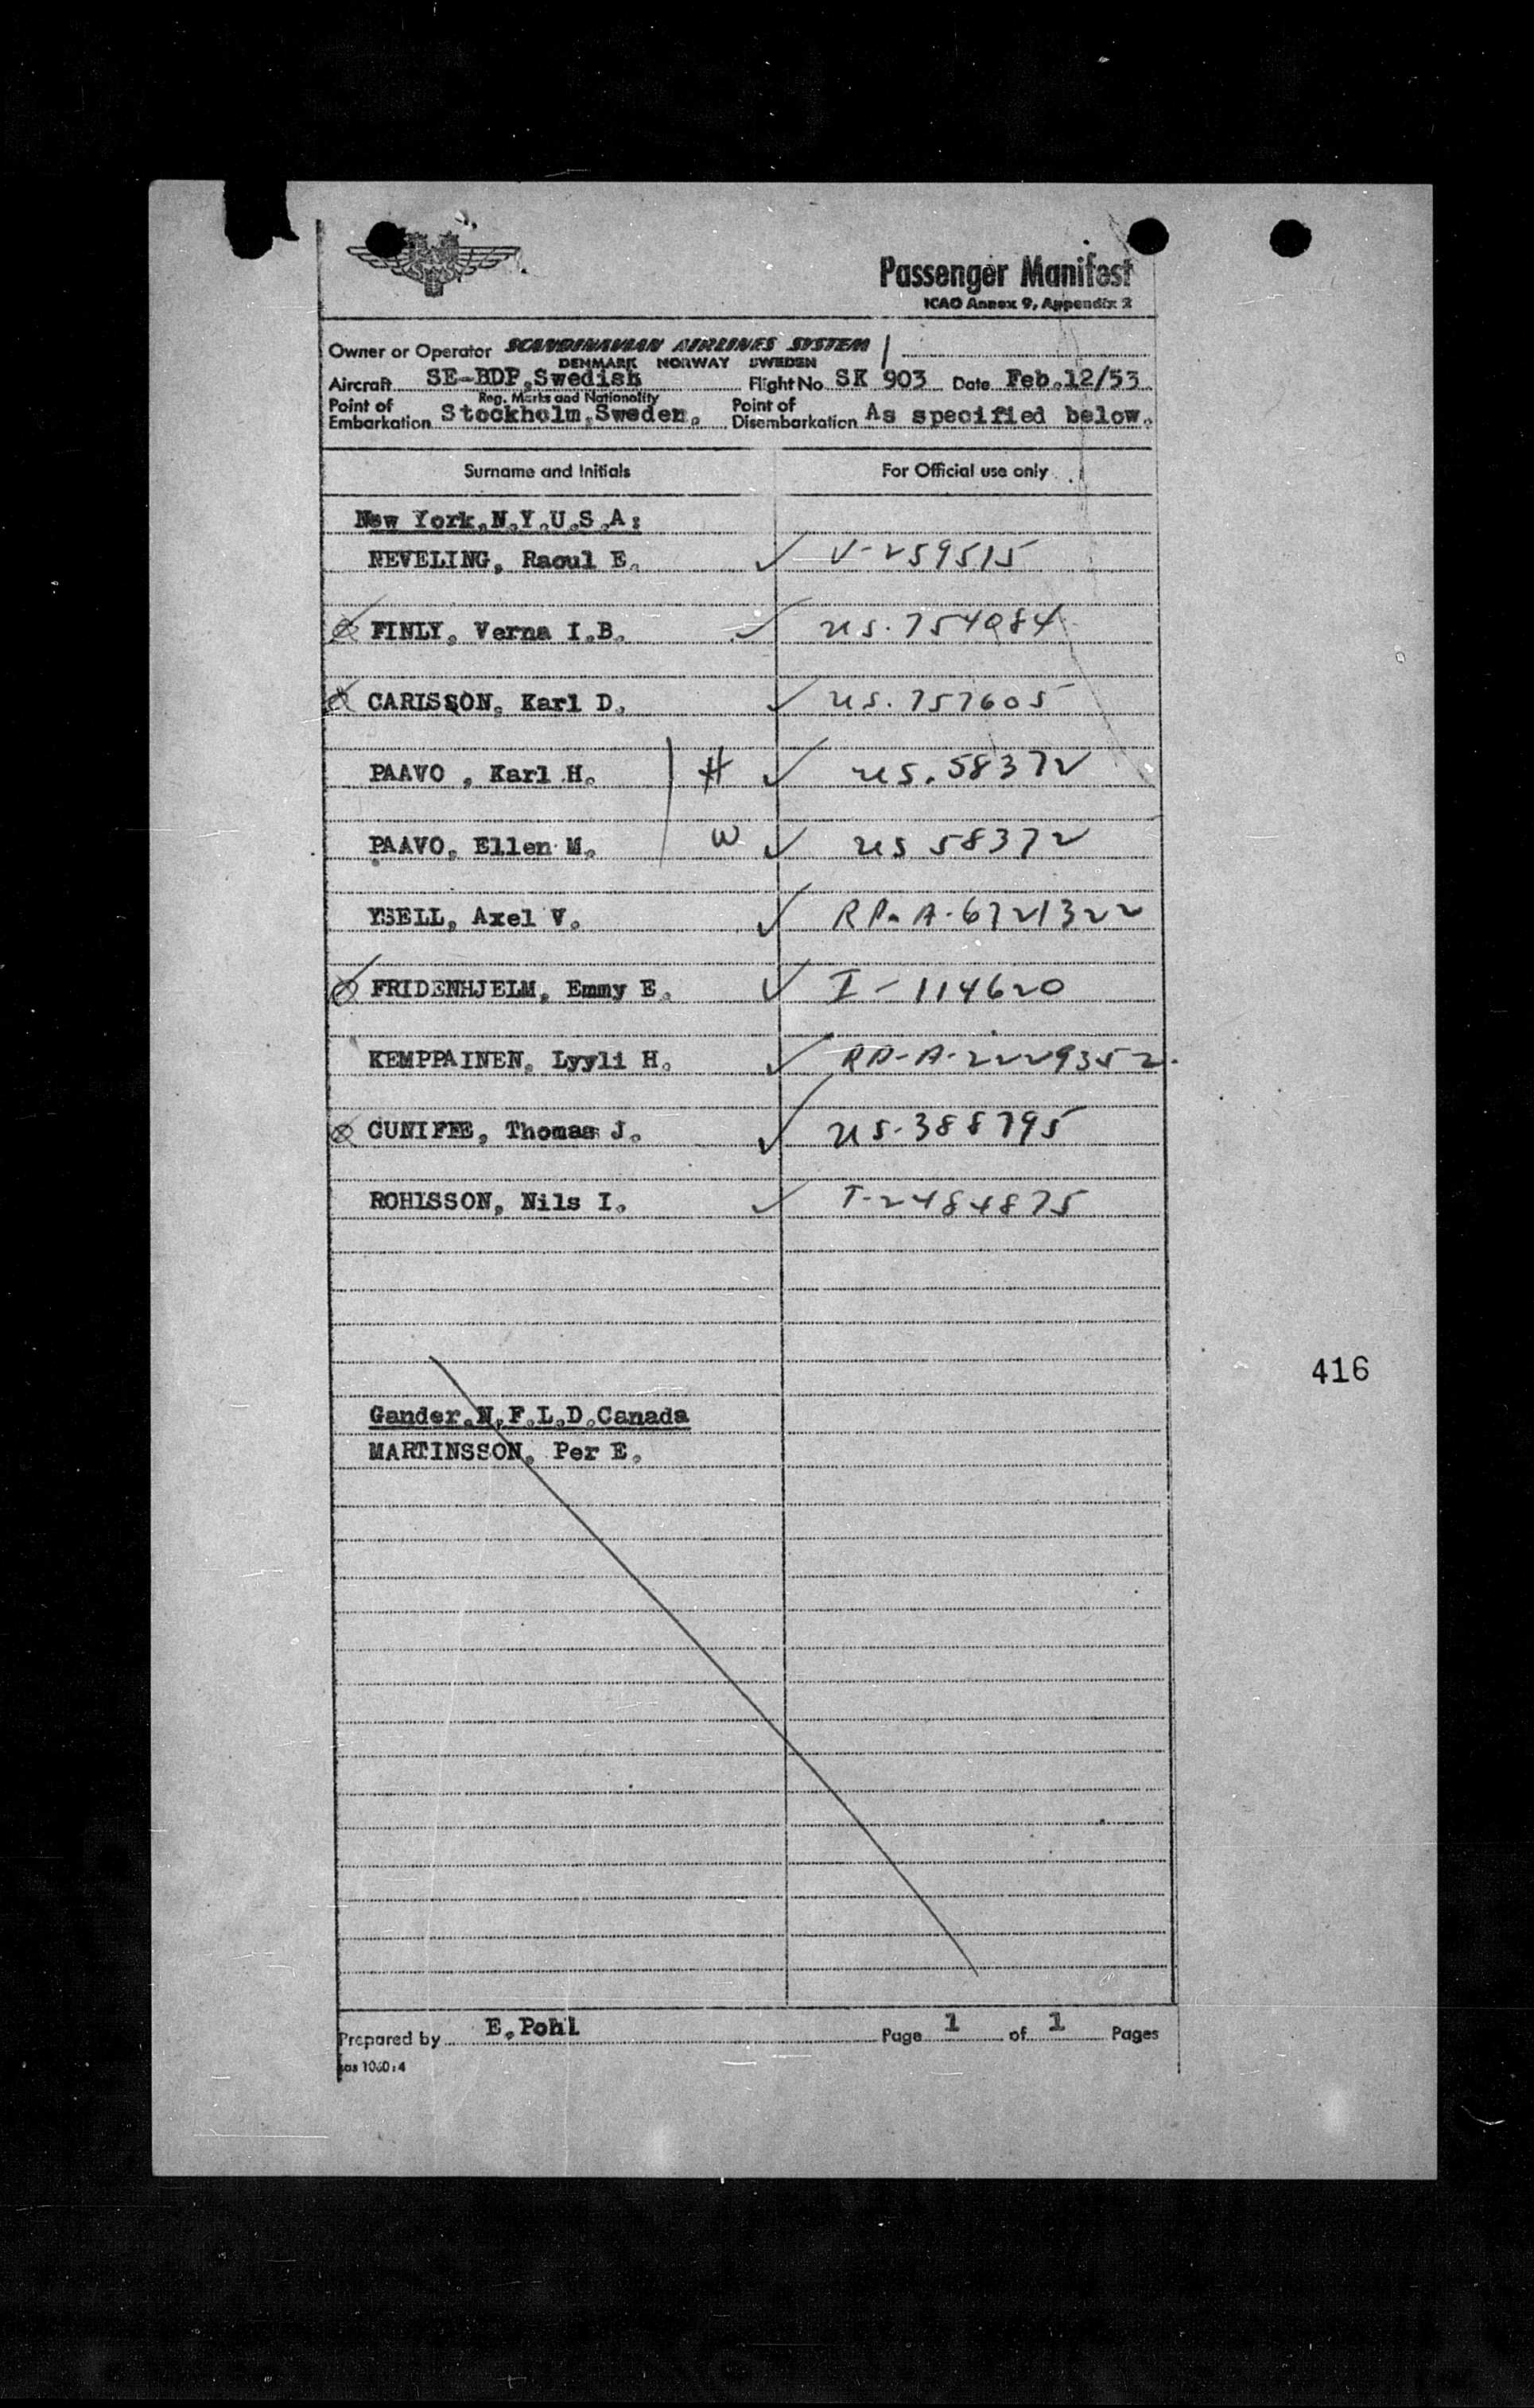 Passenger Manifest
ICAO Annex 9, Appendix 2
Owner or Operator SCANDINAVIAN AIRLINES SYSTEM
DENMARK NORWAY SWEDEN
Aircraft SE-BDP, Swedish Flight No SK 903 Date Feb.12/53
Reg. Marks and Nationality
Point of Embarkation Stockholm, Sweden. Point of Disembarkation As specified below.
Surname and Initials For Official use only
New York, N.Y. U.S.A:
NEVELING, Raoul E. ✓ V-259515
FINLY, Verna I.B. ✓ US.754984
CARISSON, Karl D. ✓ US.757605
PAAVO , Karl H. H ✓ US.58372
PAAVO, Ellen M. W ✓ US 58372
YSELL, Axel V. ✓ RP-A-6721322
FRIDENHJELM, Emmy E. ✓ I-114620
KEMPPAINEN, Lyyli H. ✓ RP-A-2229352.
CUNIFEE, Thomas J. ✓ US-388795
ROHLSSON, Nils I. ✓ T-2484875
416
Gander, N.F.L.D. Canada
MARTINSSON, Per E.
Prepared by E. Pohl Page 1 of 1 Pages
sas 1060:4